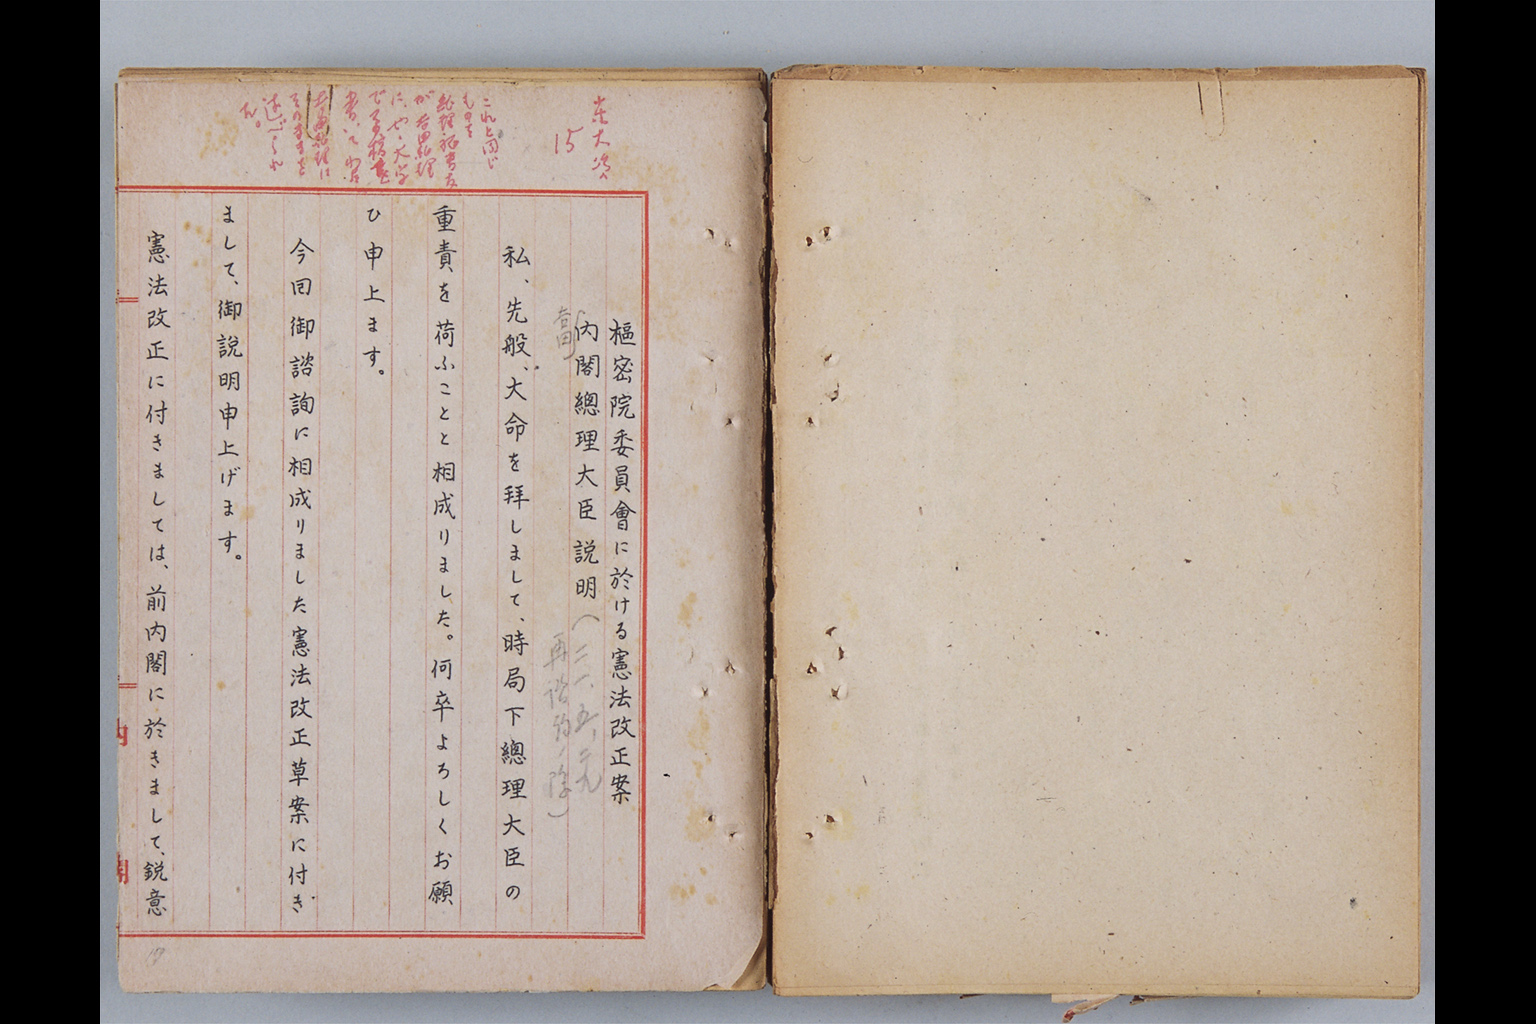 15
これと同じ
ものを
総理秘書官
が吉田総理
に、やゝ大学
で
書いて
吉田総理は
そのまゝを
述べられ
た。
樞密院委員會に於ける憲法改正案
內閣總理大臣說明(二一、五、二九
吉田
再諮詢ノ際)
私、先般、大命を拜しまして、時局下總理大臣の
重責を荷ふことと相成りました。何卒よろしくお願
ひ申上ます。
今回御諮詢に相成りました憲法改正草案に付き
まして、御說明申上げます。
憲法改正に付きましては、前内閣に於きまして、鋭意
內
閣